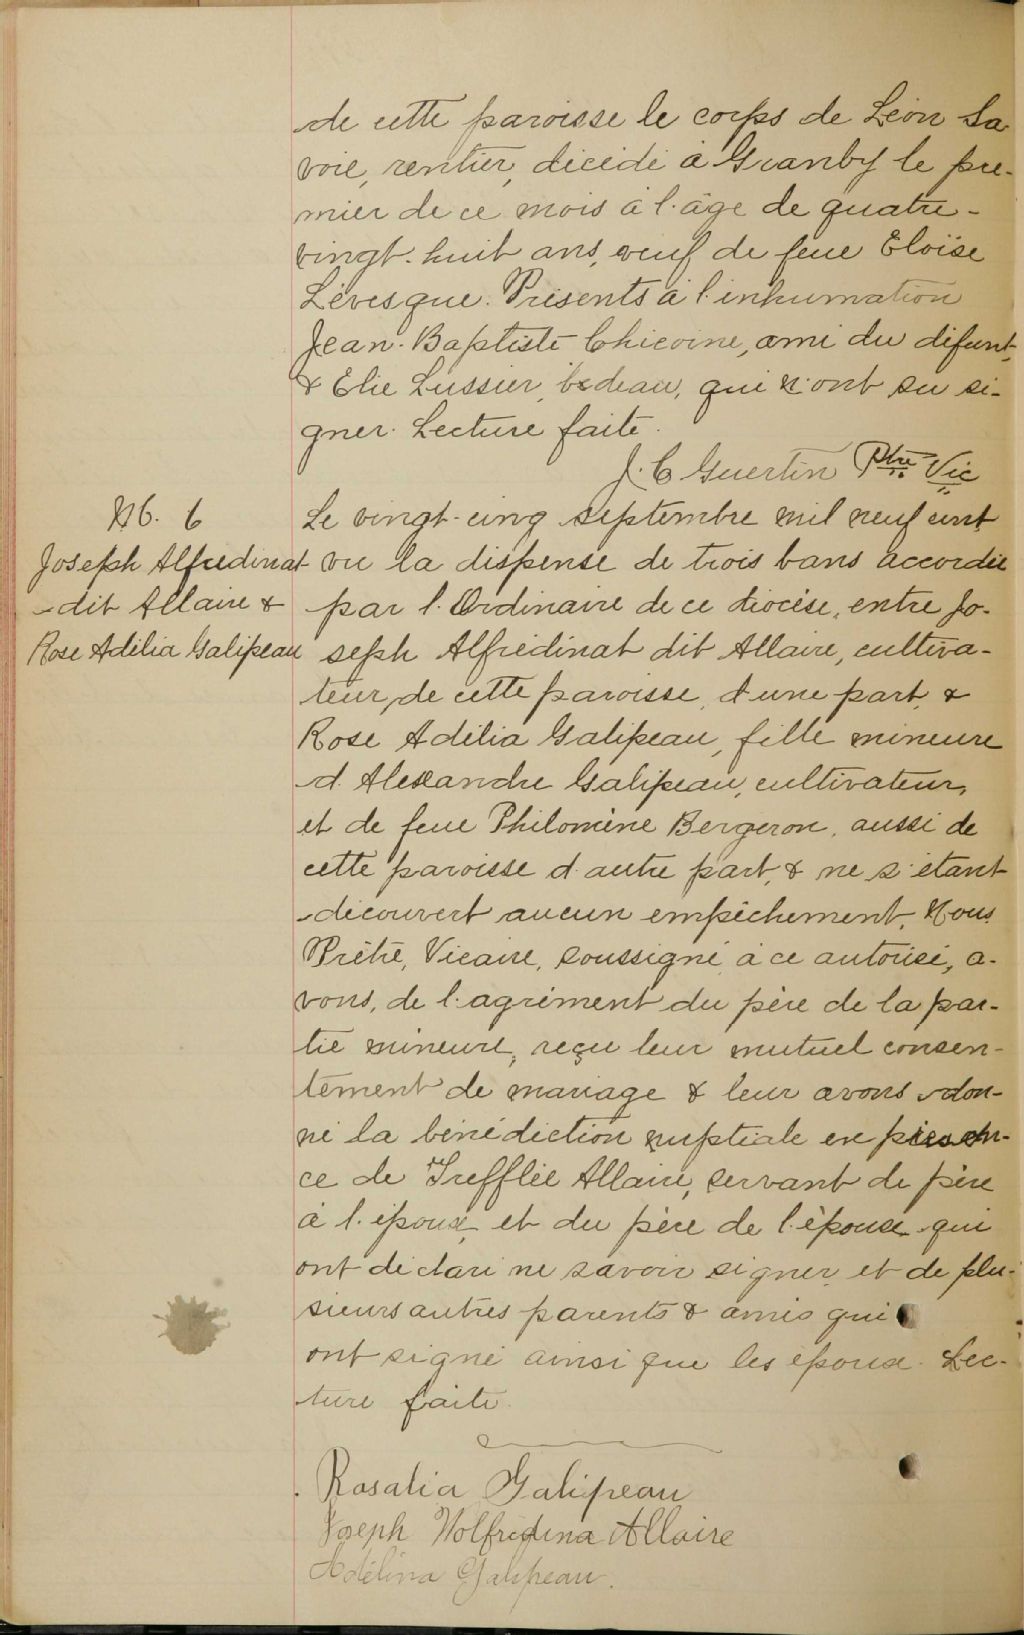 de cette paroisse le corps de Léon Sa
voie, rentier, décédé à Granby le pre-
mier de ce mois à l'âge de quatre-
vingt-huit ans, veuf de feue Eloïse
Lévesque. Présents à l'inhumation
Jean-Baptiste Chicoine, ami du défunt,
& Elie Lussier, bedeau, qui n'ont su si-
gner. Lecture faite.
J. C Guertin Ptre Vic
M. 6
Joseph Alfrédinat
dit Allaire &
Rose Adélia Galipeau
Le vingt-cinq septembre mil neuf cent
vu la dispense de trois bans accordée
par l'Ordinaire de ce diocèse, entre Jo-
seph Alfrédinat dit Allaire, cultiva-
teur, de cette paroisse, d'une part, &
Rose Adélia Galipeau, fille mineure
d'Alexandre Galipeau, cultivateur,
et de feue Philomène Bergeron, aussi de
cette paroisse d'autre part, & ne s'étant
découvert aucun empêchement, Nous
Prêtre, Vicaire, soussigné à ce autorisé, a-
vons, de l'agrément du père de la par-
tie mineure, reçu leur mutuel consen-
tement de mariage & leur avons don-
né la bénédiction nuptiale en présen-
ce de Trefflée Allaire, servant de père
à l'époux, et du père de l'épouse qui
ont déclaré ne savoir signer, et de plu-
sieurs autres parents & amis qui
ont signé ainsi que les époux. Lec-
ture faite.
Rosalia Galipeau
Joseph Wolfridina Allaire
Adélina Galipeau.